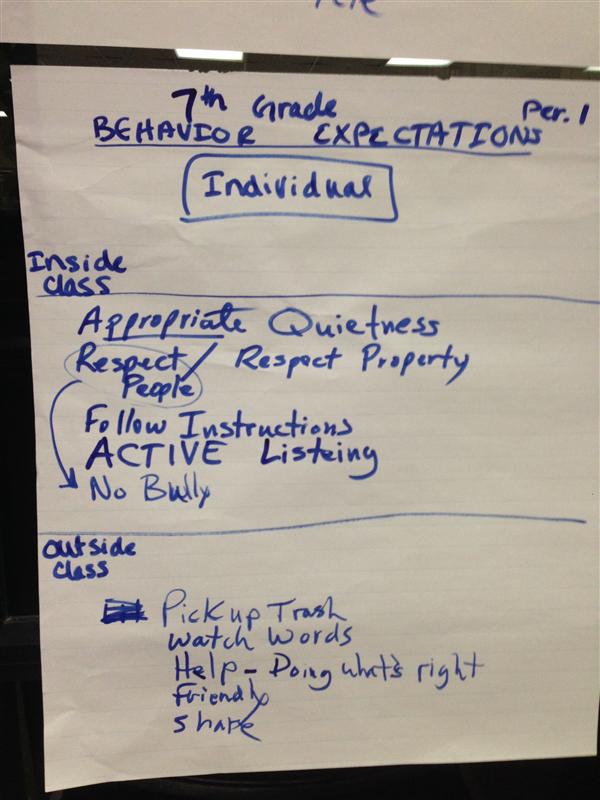 7th Grade Per. 1
BEHAVIOR EXPECTATIONS
Individual
Inside
class
Appropriate Quietness
Respect / Respect Property
People
Follow Instructions
ACTIVE Listeing
No Bully
Outside
class
Pick up Trash
Watch Words
Help - Doing what's right
Friendly
Share